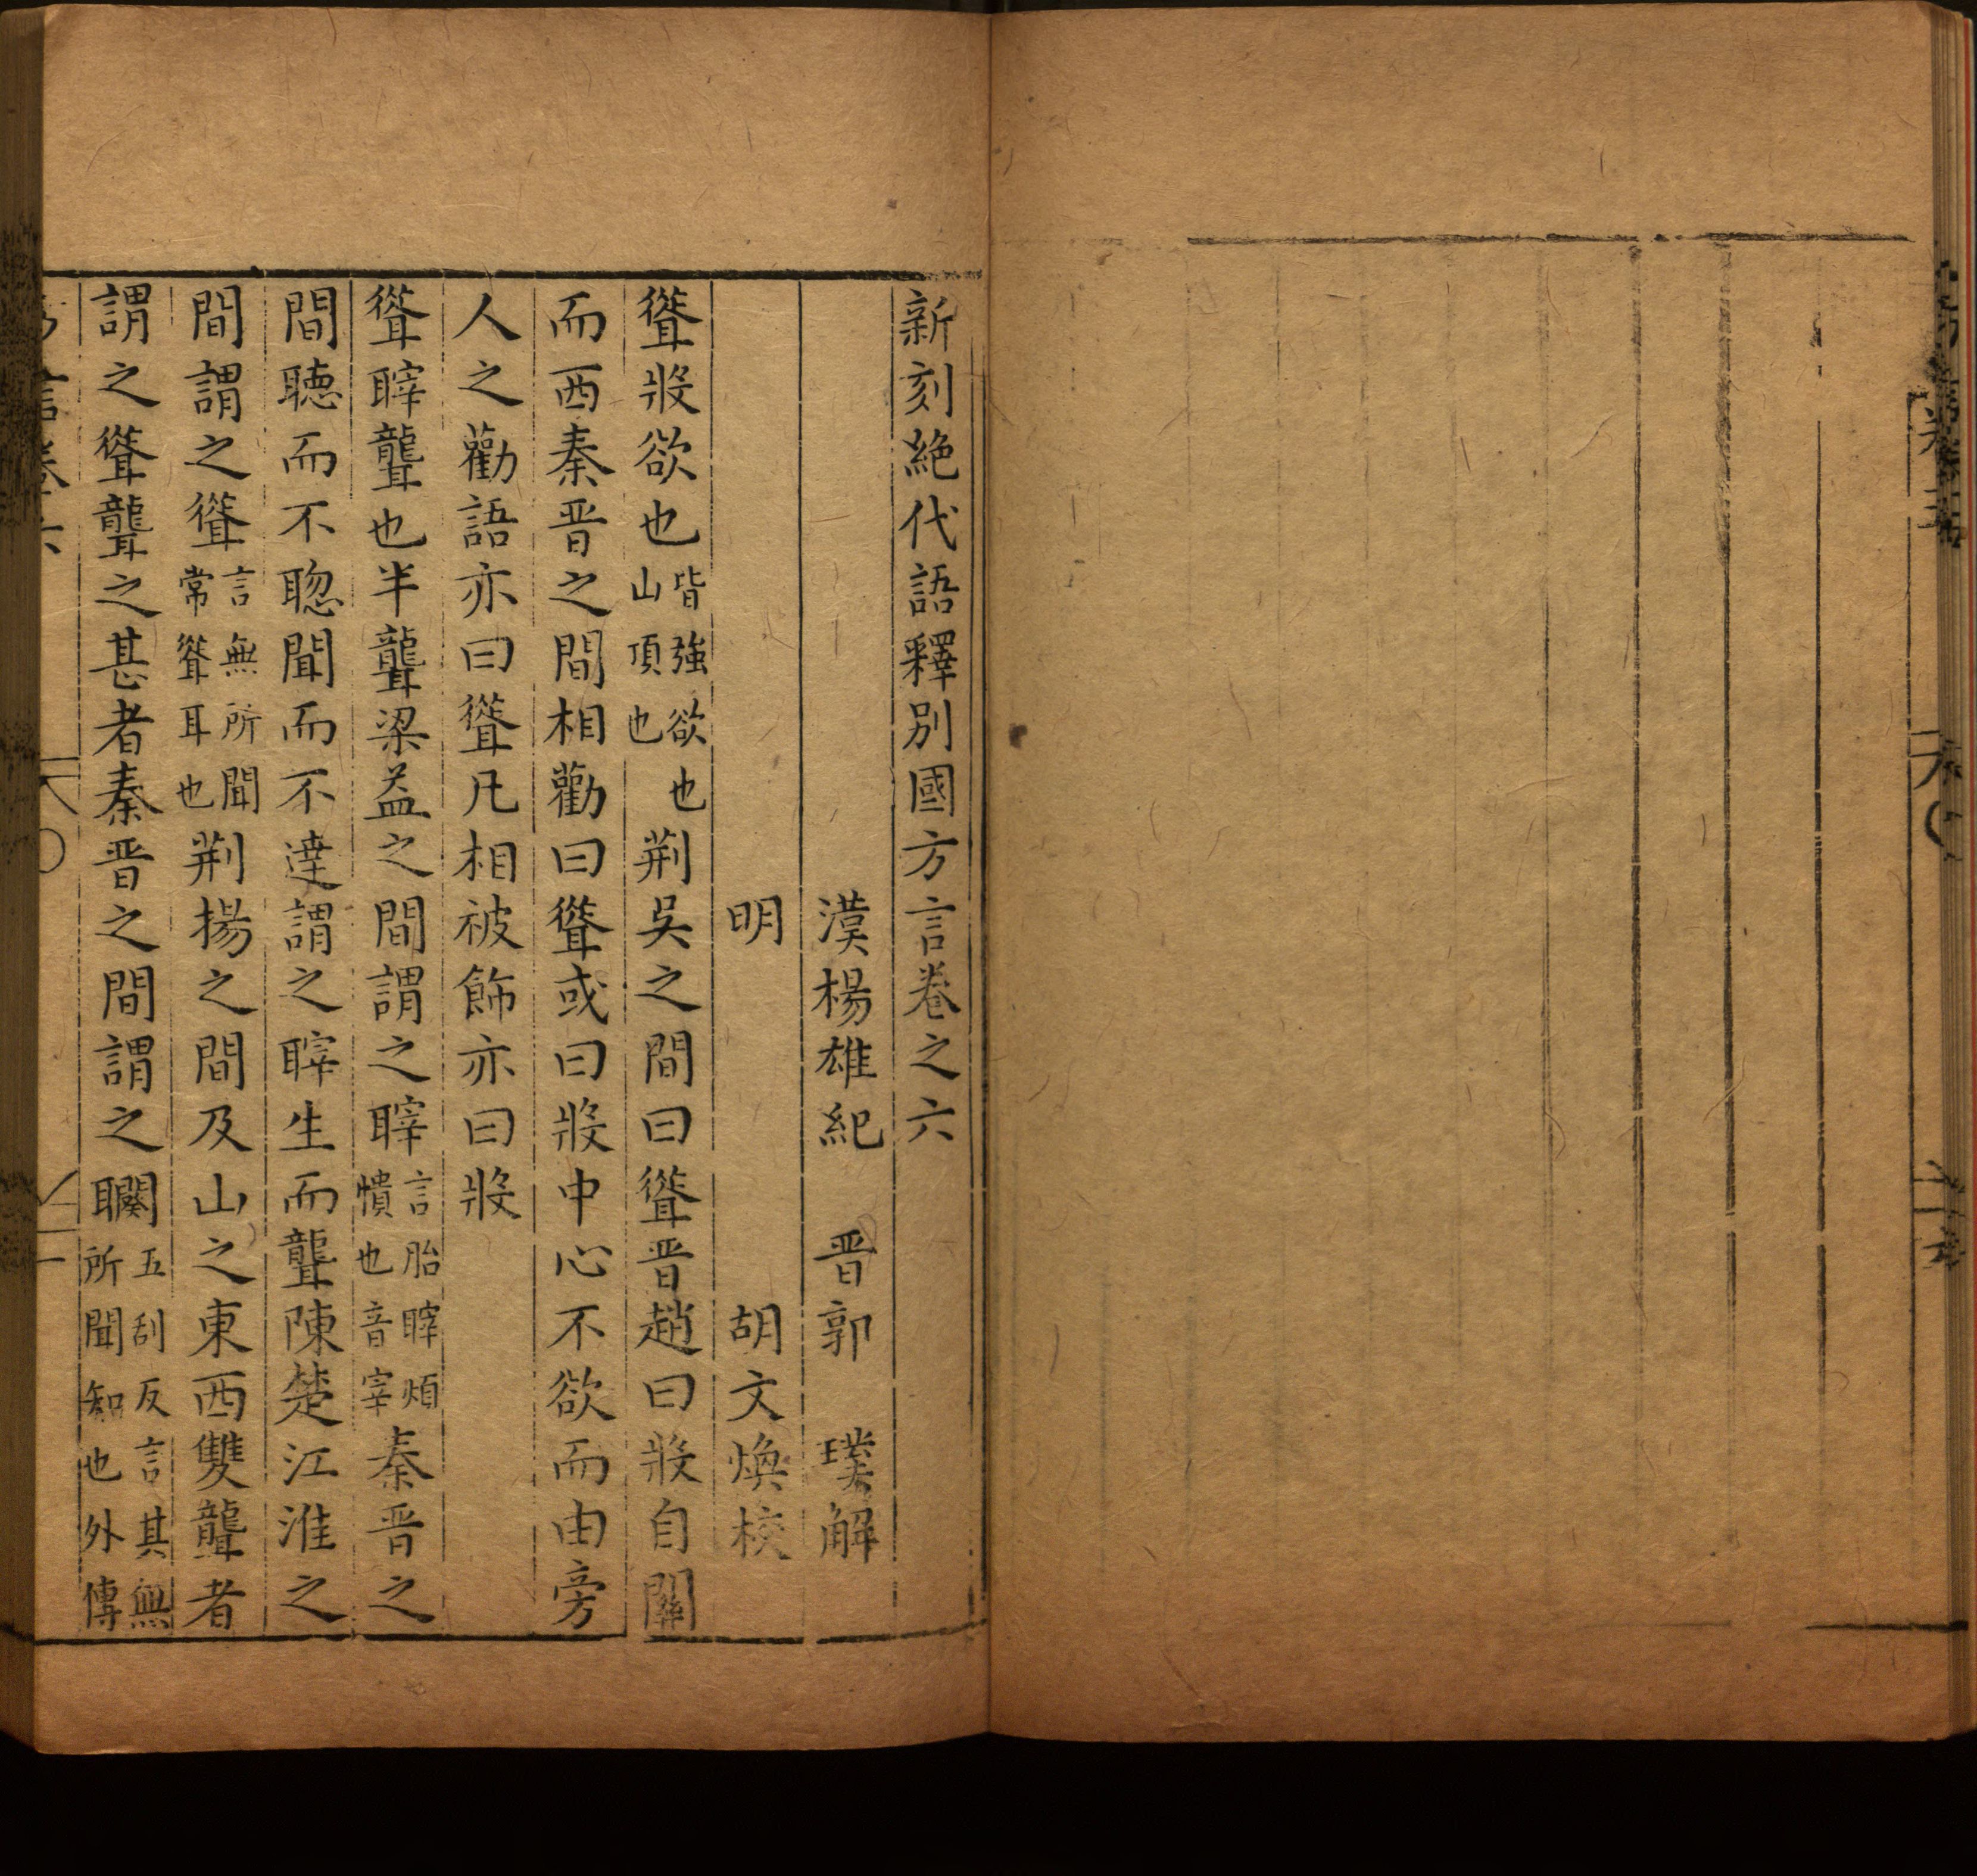 新刻絶代語釋別國方言卷之六
漢楊雄紀 晉郭 璞解
明 胡文煥校
聳㢡欲也皆強欲也山頂也荆吳之間曰聳晉趙曰㢡自關
而西秦晉之間相勸曰聳或曰㢡中心不欲而由旁
人之勸語亦曰聳凡相被飾亦曰㢡
聳聹聾也半聾梁益之間謂之聹言胎聹煩憒也音宰秦晉之
間聽而不聦聞而不達謂之聹生而聾陳楚江淮之
間謂之聳言無所聞常聳耳也荆揚之間及山之東西雙聾者
謂之聳聾之甚者秦晉之間謂之䦧五刮反言其無所聞知也外傳